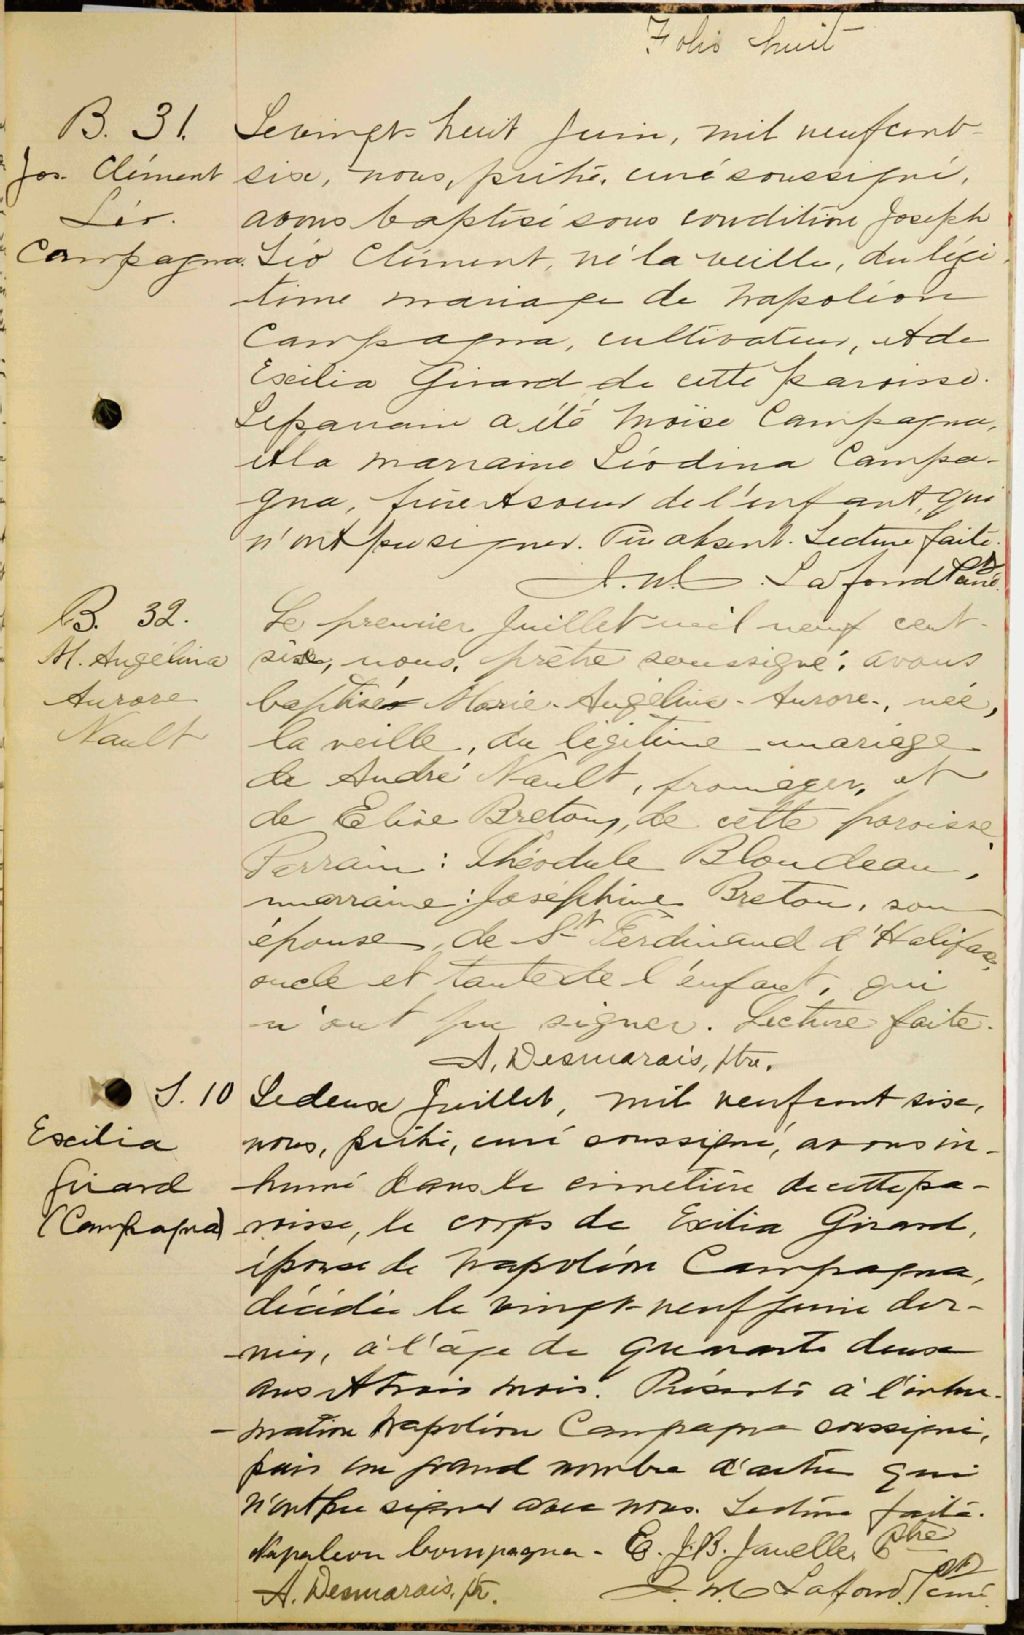 Folio huit
B. 31.
Jos. Clément
Léo.
Campagna.
Le vingt-huit Juin, mil neuf cent-
six, nous, prêtre, curé soussigné,
avons baptisé sous condition Joseph
Léo Clément, né la veille, du légi-
time mariage de Napoléon
Campagna, cultivateur, et de
Exilia Girard de cette paroisse.
Le parrain a été Moïse Campagna,
et la marraine Léodina Campa-
gna, frère et soeur de l'enfant, qui
n'ont pu signer. Père absent. Lecture faite.
Lafond Ptre curé.
B. 32.
M. Angélina
Aurore
Nault
Le premier Juillet mil neuf cent-
six, nous, prêtre soussigné, avons
baptisé Marie-Angélina-Aurore, née,
la veille, du légitime mariage
de André Nault, fromager, et
de Elise Breton, de cette paroisse.
Parrain: Théodule Blondeau,
marraine: Joséphine Breton, son
épouse, de St Ferdinand d'Halifax,
oncle et tante de l'enfant, qui
n'ont pu signer. Lecture faite.
A. Desmarais, ptre.
S. 10
Exilia
Girard
(Campagna)
Le deux Juillet, mil neuf cent six,
nous, prêtre, curé soussigné, avons in-
humé dans le cimetière de cette pa-
roisse, le corps de Exilia Girard,
épouse de Napoléon Campagna,
décédée le vingt-neuf Juin der-
nier, à l'âge de quarante deux
ans et trois mois. Présents à l'inhu-
mation Napoléon Campagna soussigné,
puis un grand nombre d'autres qui
n'ont pu signer avec nous. Lecture faite.
Napoleon Compagna - E. J. B. Janelle, Ptre
A. Desmarais, ptr. Lafond, Ptre curé.